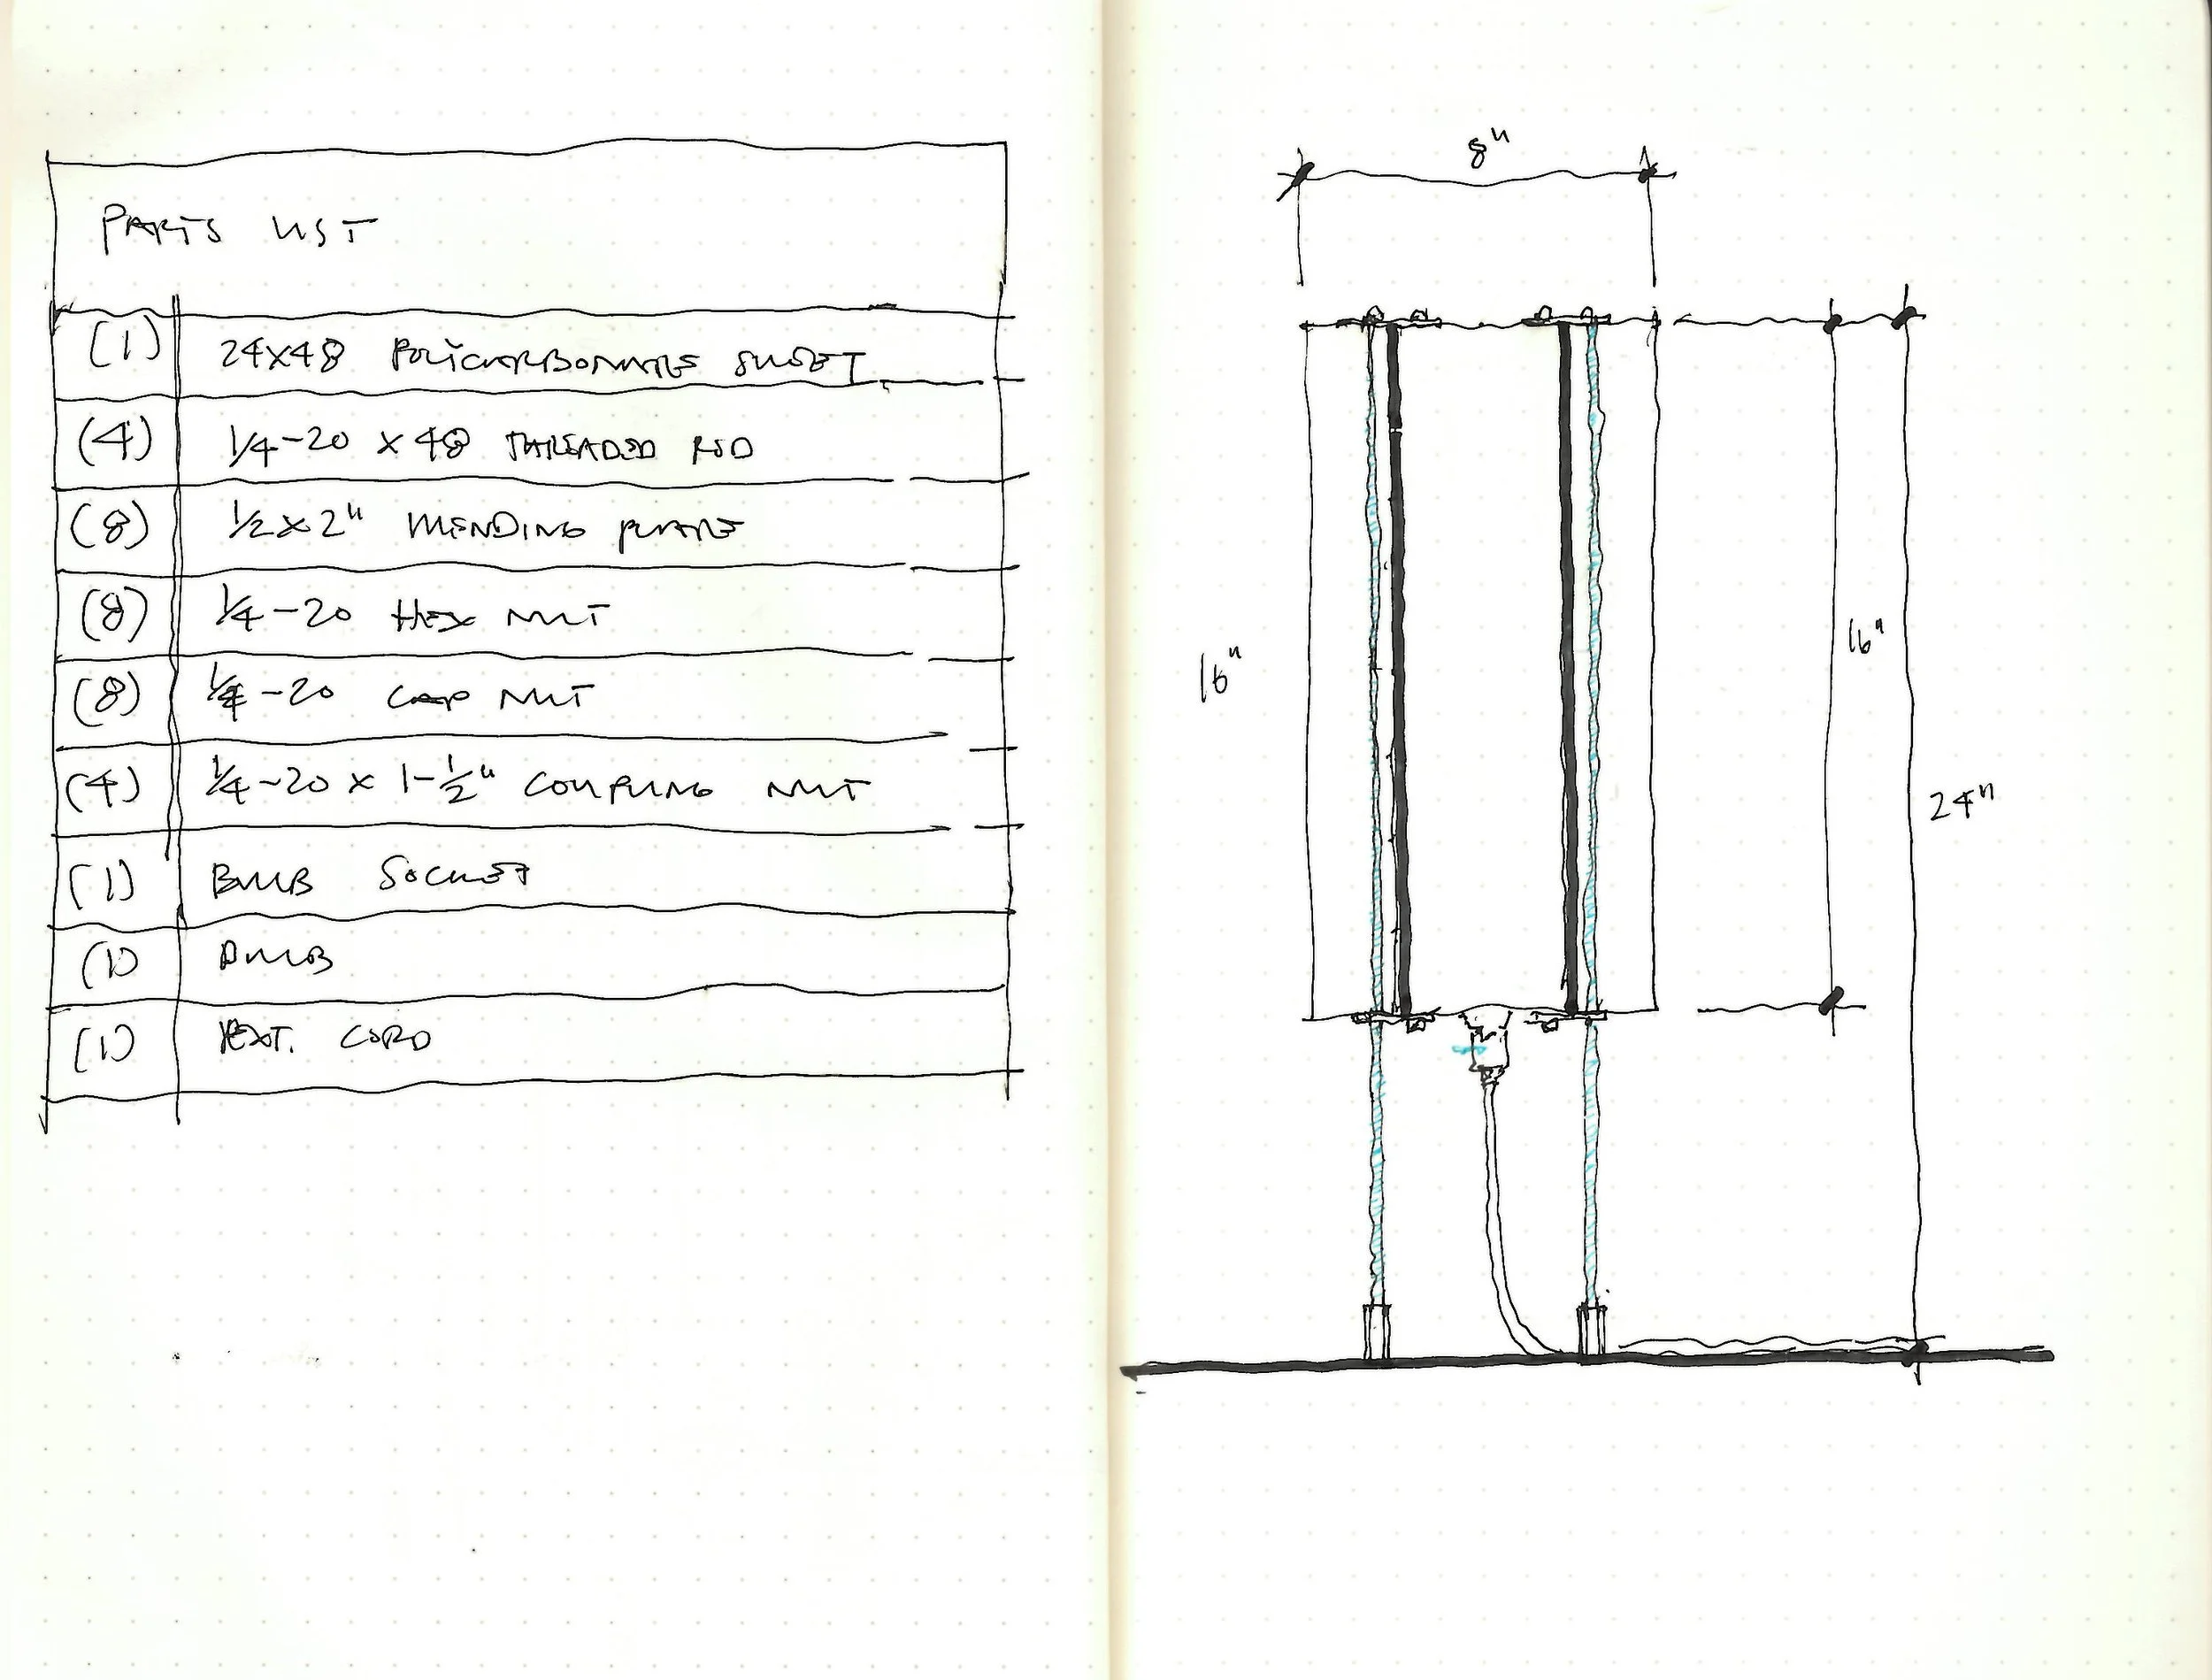 PARTS LIST
(1) 24x48 POLYCARBONATE SHEET
(4) 1/4-20 x 48 THREADED ROD
(8) 1/2 x 2" MENDING PLATE
(8) 1/4-20 HEX NUT
(8) 1/4-20 CAP NUT
(4) 1/4-20 x 1-1/2" COUPLING NUT
(1) BULB SOCKET
(1) BULB
(1) EXT. CORD
8"
16"
16"
24"